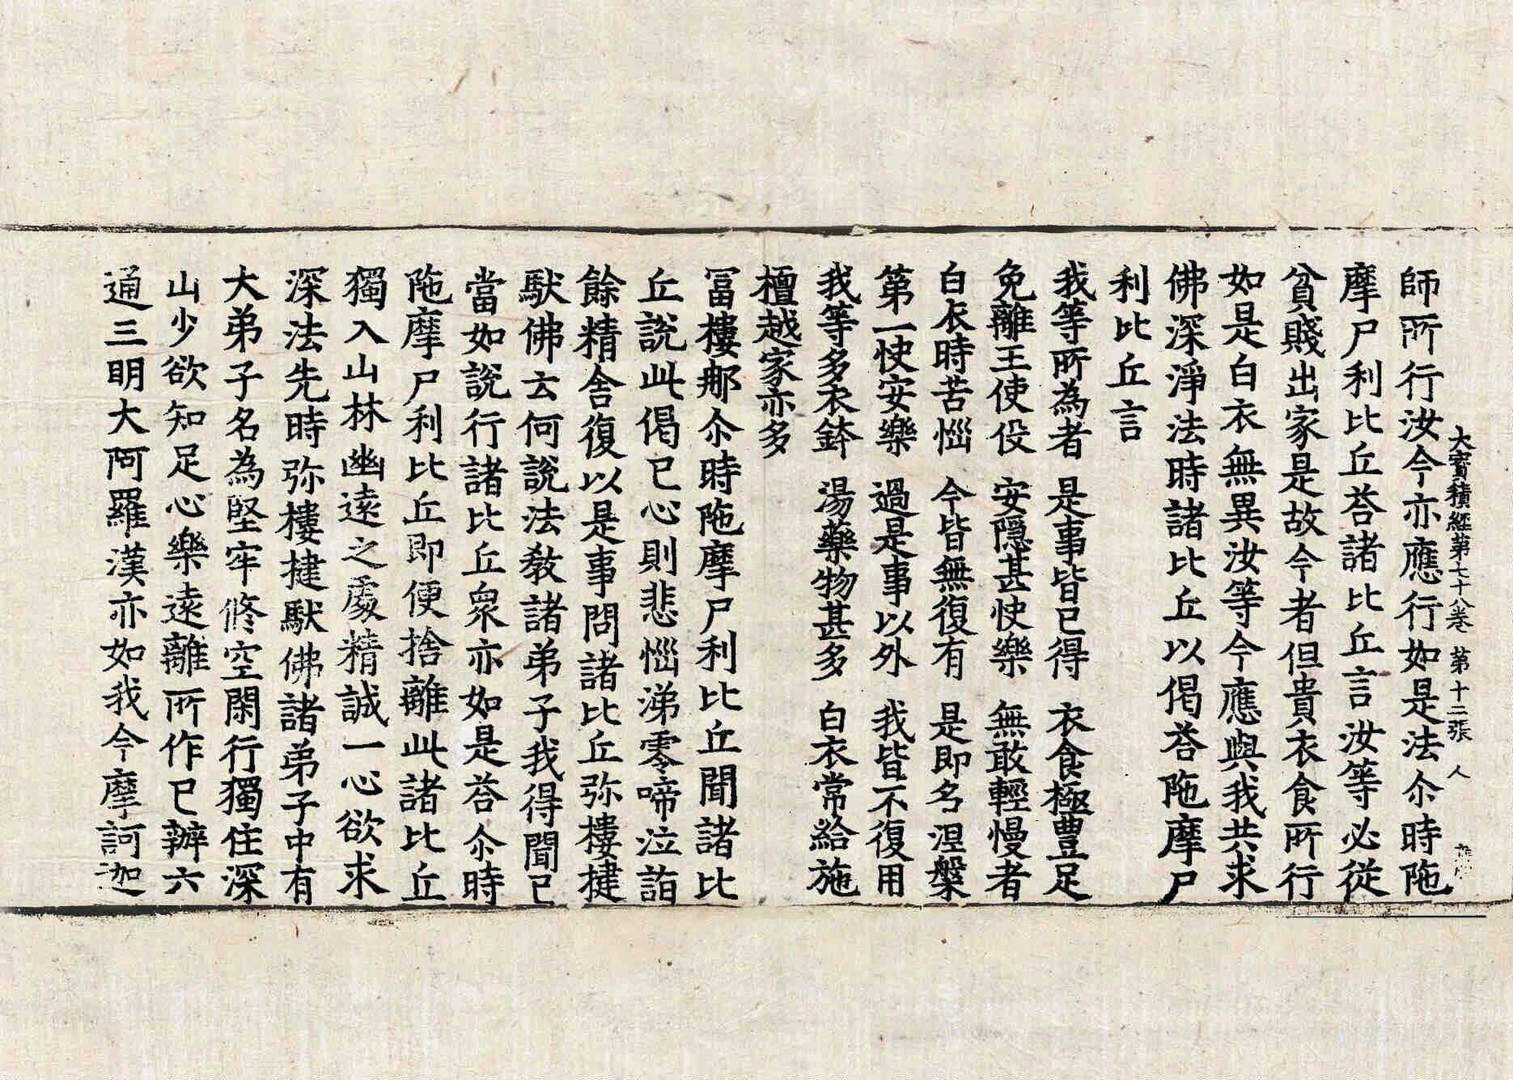 大寶積經第七十八卷 第十二張 人
師所行汝今亦應行如是法尒時陁
摩尸利比丘荅諸比丘言汝等必從
貧賤出家是故今者但貴衣食所行
如是白衣無異汝等今應與我共求
佛深淨法時諸比丘以偈荅陁摩尸
利比丘言
我等所為者 是事皆已得 衣食極豊足
免離王使役 安隱甚快樂 無敢輕慢者
白衣時苦惱 今皆無復有 是即名涅槃
第一快安樂 過是事以外 我皆不復用
我等多衣鉢 湯藥物甚多 白衣常給施
檀越家亦多
冨樓那尒時陁摩尸利比丘聞諸比
丘說此偈已心則悲惱涕零啼泣詣
餘精舍復以是事問諸比丘弥樓揵
馱佛云何說法教諸弟子我得聞已
當如說行諸比丘衆亦如是荅尒時
陁摩尸利比丘即便捨離此諸比丘
獨入山林幽遠之處精誠一心欲求
深法先時弥樓揵馱佛諸弟子中有
大弟子名為堅牢脩空閑行獨住深
山少欲知足心樂遠離所作已辦六
通三明大阿羅漢亦如我今摩訶迦